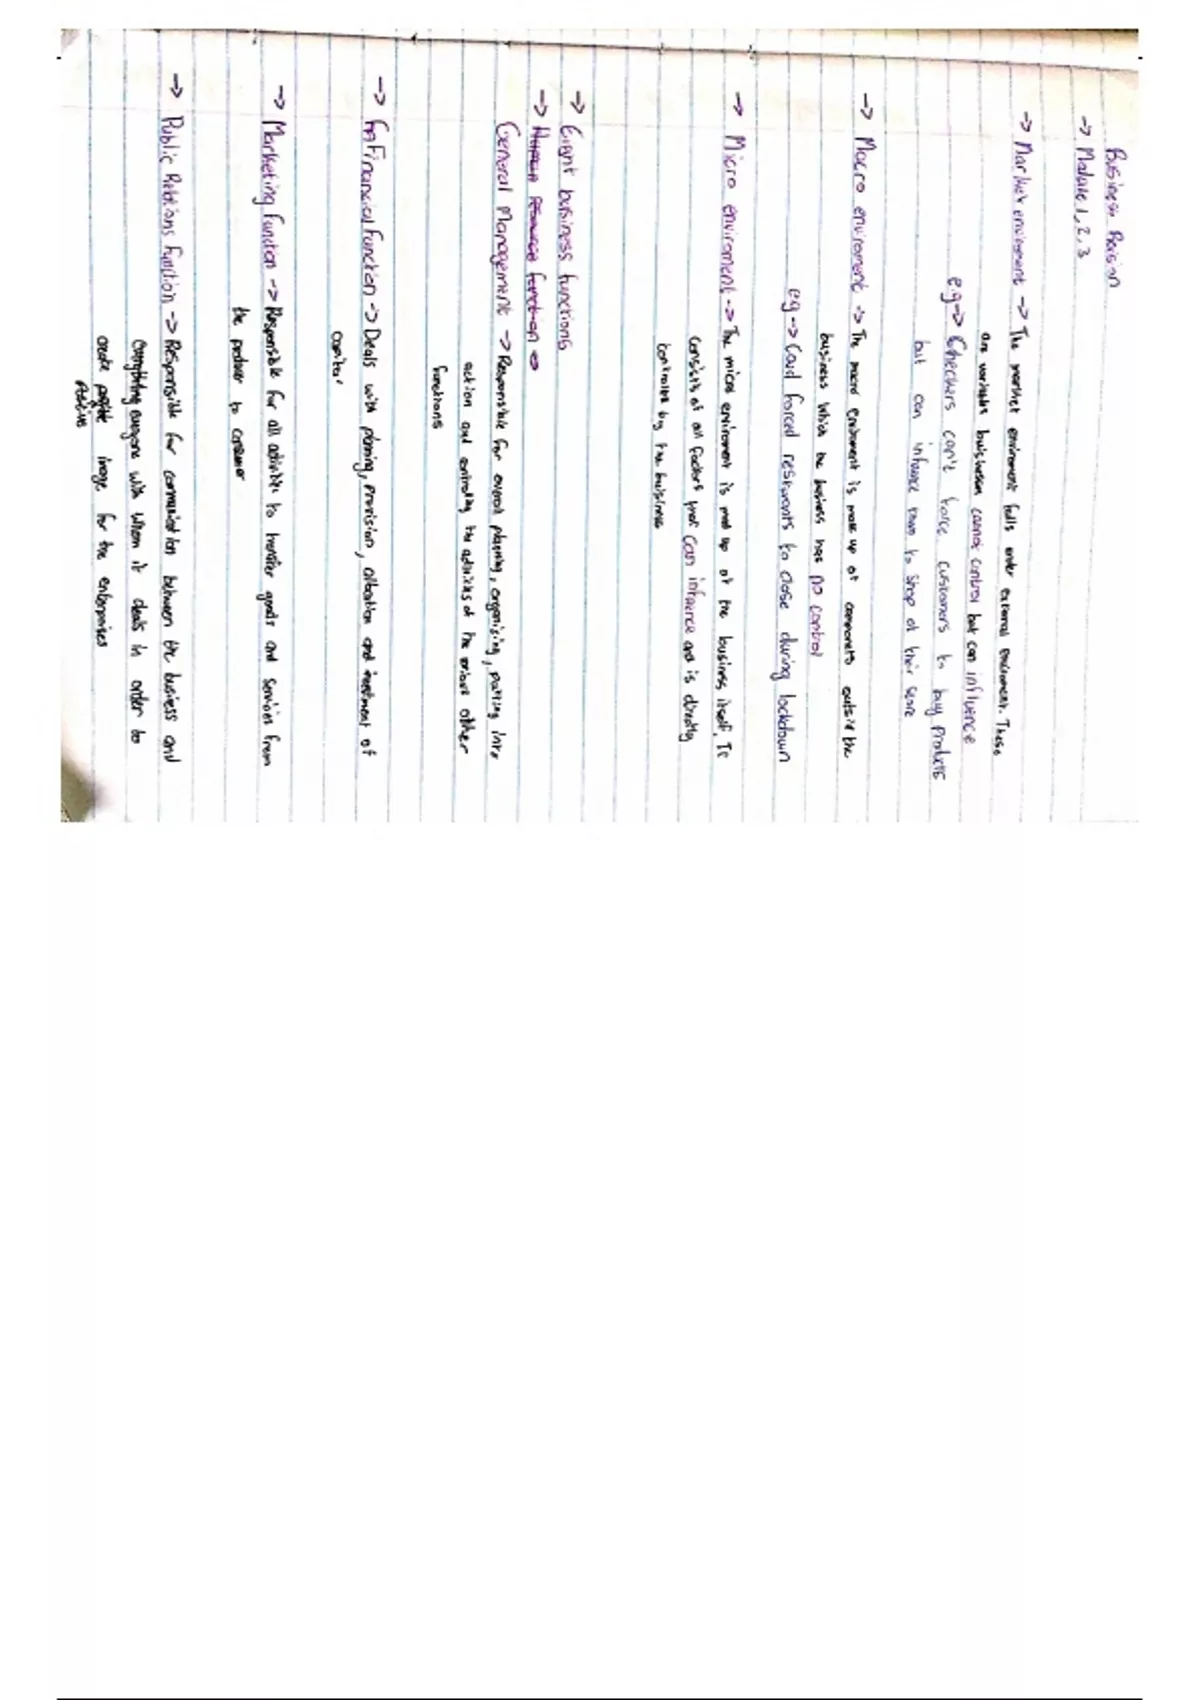 Business Revision
→ Module 1, 2, 3
→ Market enviroment → The market enviroment falls under external enviroment. These
are variables businesses cannot control but can influence
e.g → Checkers can't force customers to buy products
but can infuence them to shop at their store
→ Macro enviroment → The macro enviroment is made up of components outside the
business which the business has no control
e.g → Covid forced resturants to close during lockdown
→ Micro enviroment → The micro enviroment is made up of the business itself. It
consists of all factors that can infuence and is directly
controlled by the business
→ Eight business functions
→ Human Resource function →
General Management → Responsible for overall planning, organising, putting into
action and controlling the activities of the various other
functions
→ Financial Function → Deals with planning, provision, allocation and investment of
capital
→ Marketing function → Responsible for all activities to transfer goods and services from
the producer to consumer
→ Public Relations Function → Responsible for communication between the business and
everything everyone with whom it deals in order to
create image for the enterprises
positive